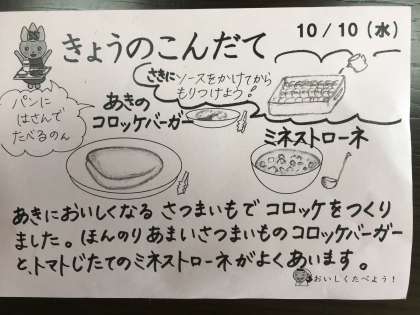 きょうのこんだて
10/10(水)
パンに
はさんで
たべるのん
さきにソースをかけてから
もりつけよう!
あきの
コロッケバーガー
ミネストローネ
あきにおいしくなる さつまいもで コロッケをつくり
ました。ほんのりあまいさつまいものコロッケバーガー
と、トマトじたてのミネストローネがよくあいます。
おいしくたべよう!